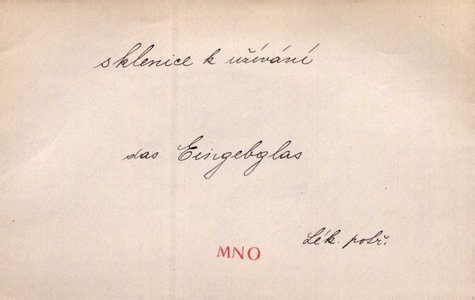 sklenice k užívání
das Eingebglas
Lék. potř.
MNO